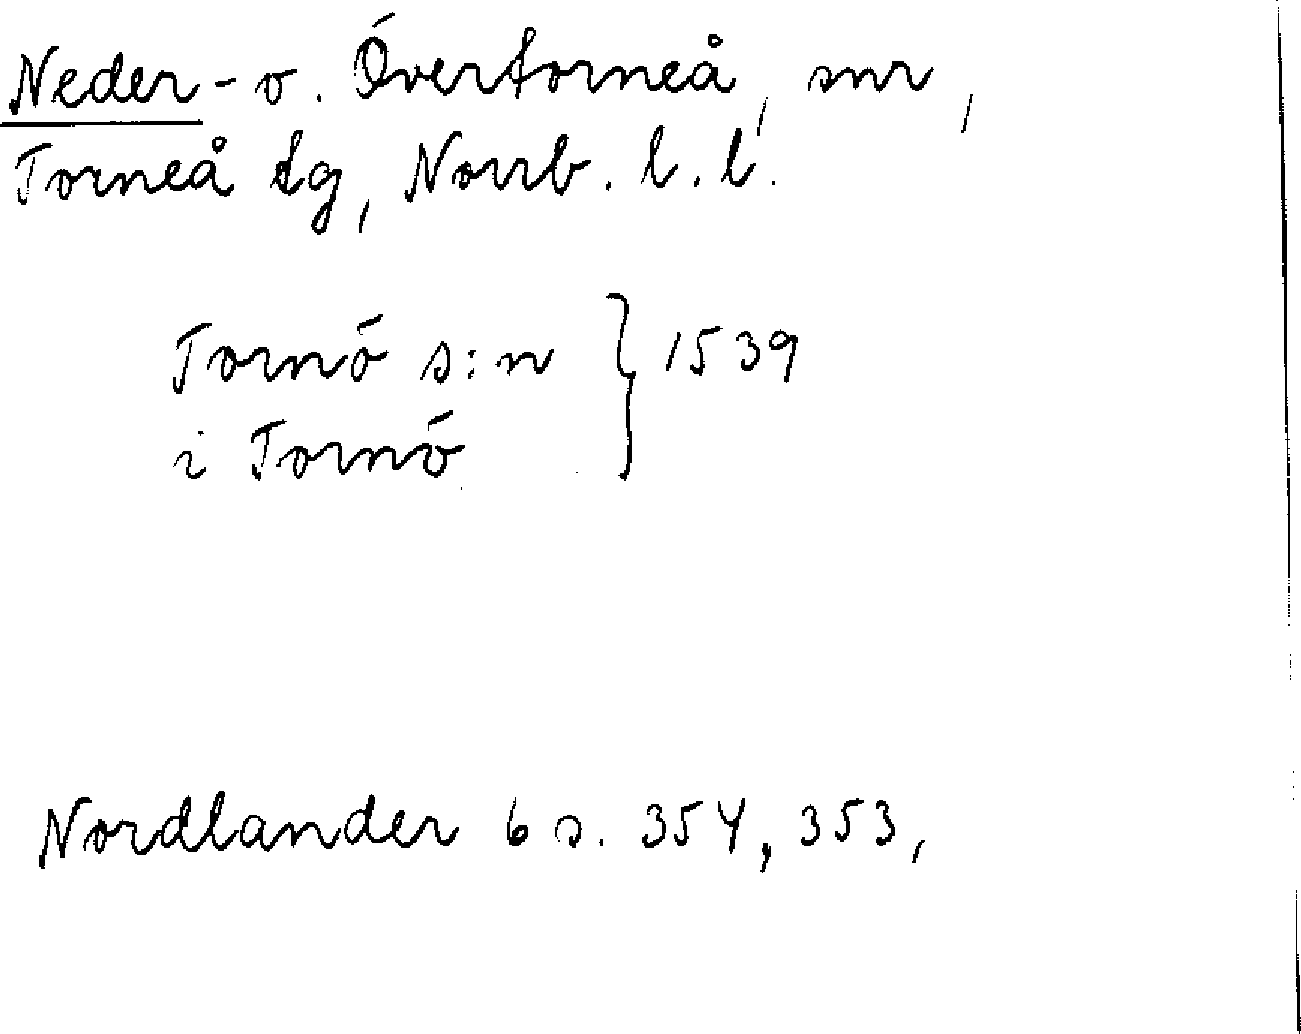 Neder- o. Övertorneå, snr,
Torneå tg, Norrb. l. l.
Tornö s:n } 1539
i Tornö
Nordlander 6 s. 354, 353,